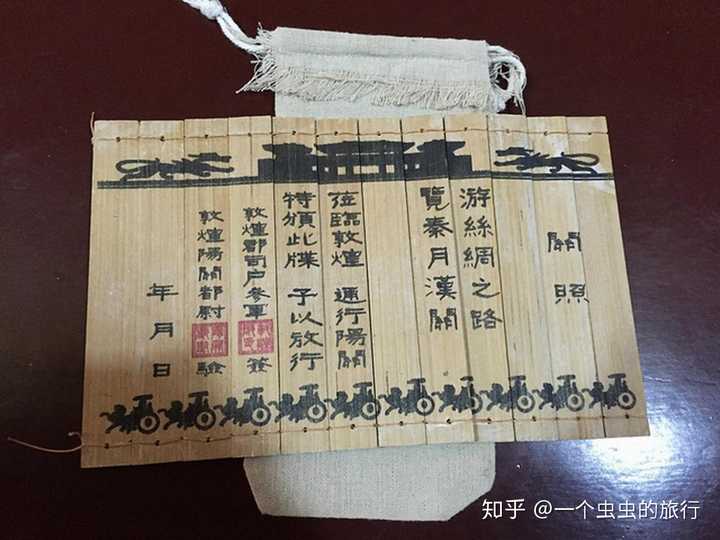 關照
游絲綢之路
覽秦月漢關
蒞臨敦煌 通行陽關
特頒此牒 予以放行
敦煌郡司户參軍 簽
敦煌陽關都尉 驗
年月日
知乎 @一个虫虫的旅行